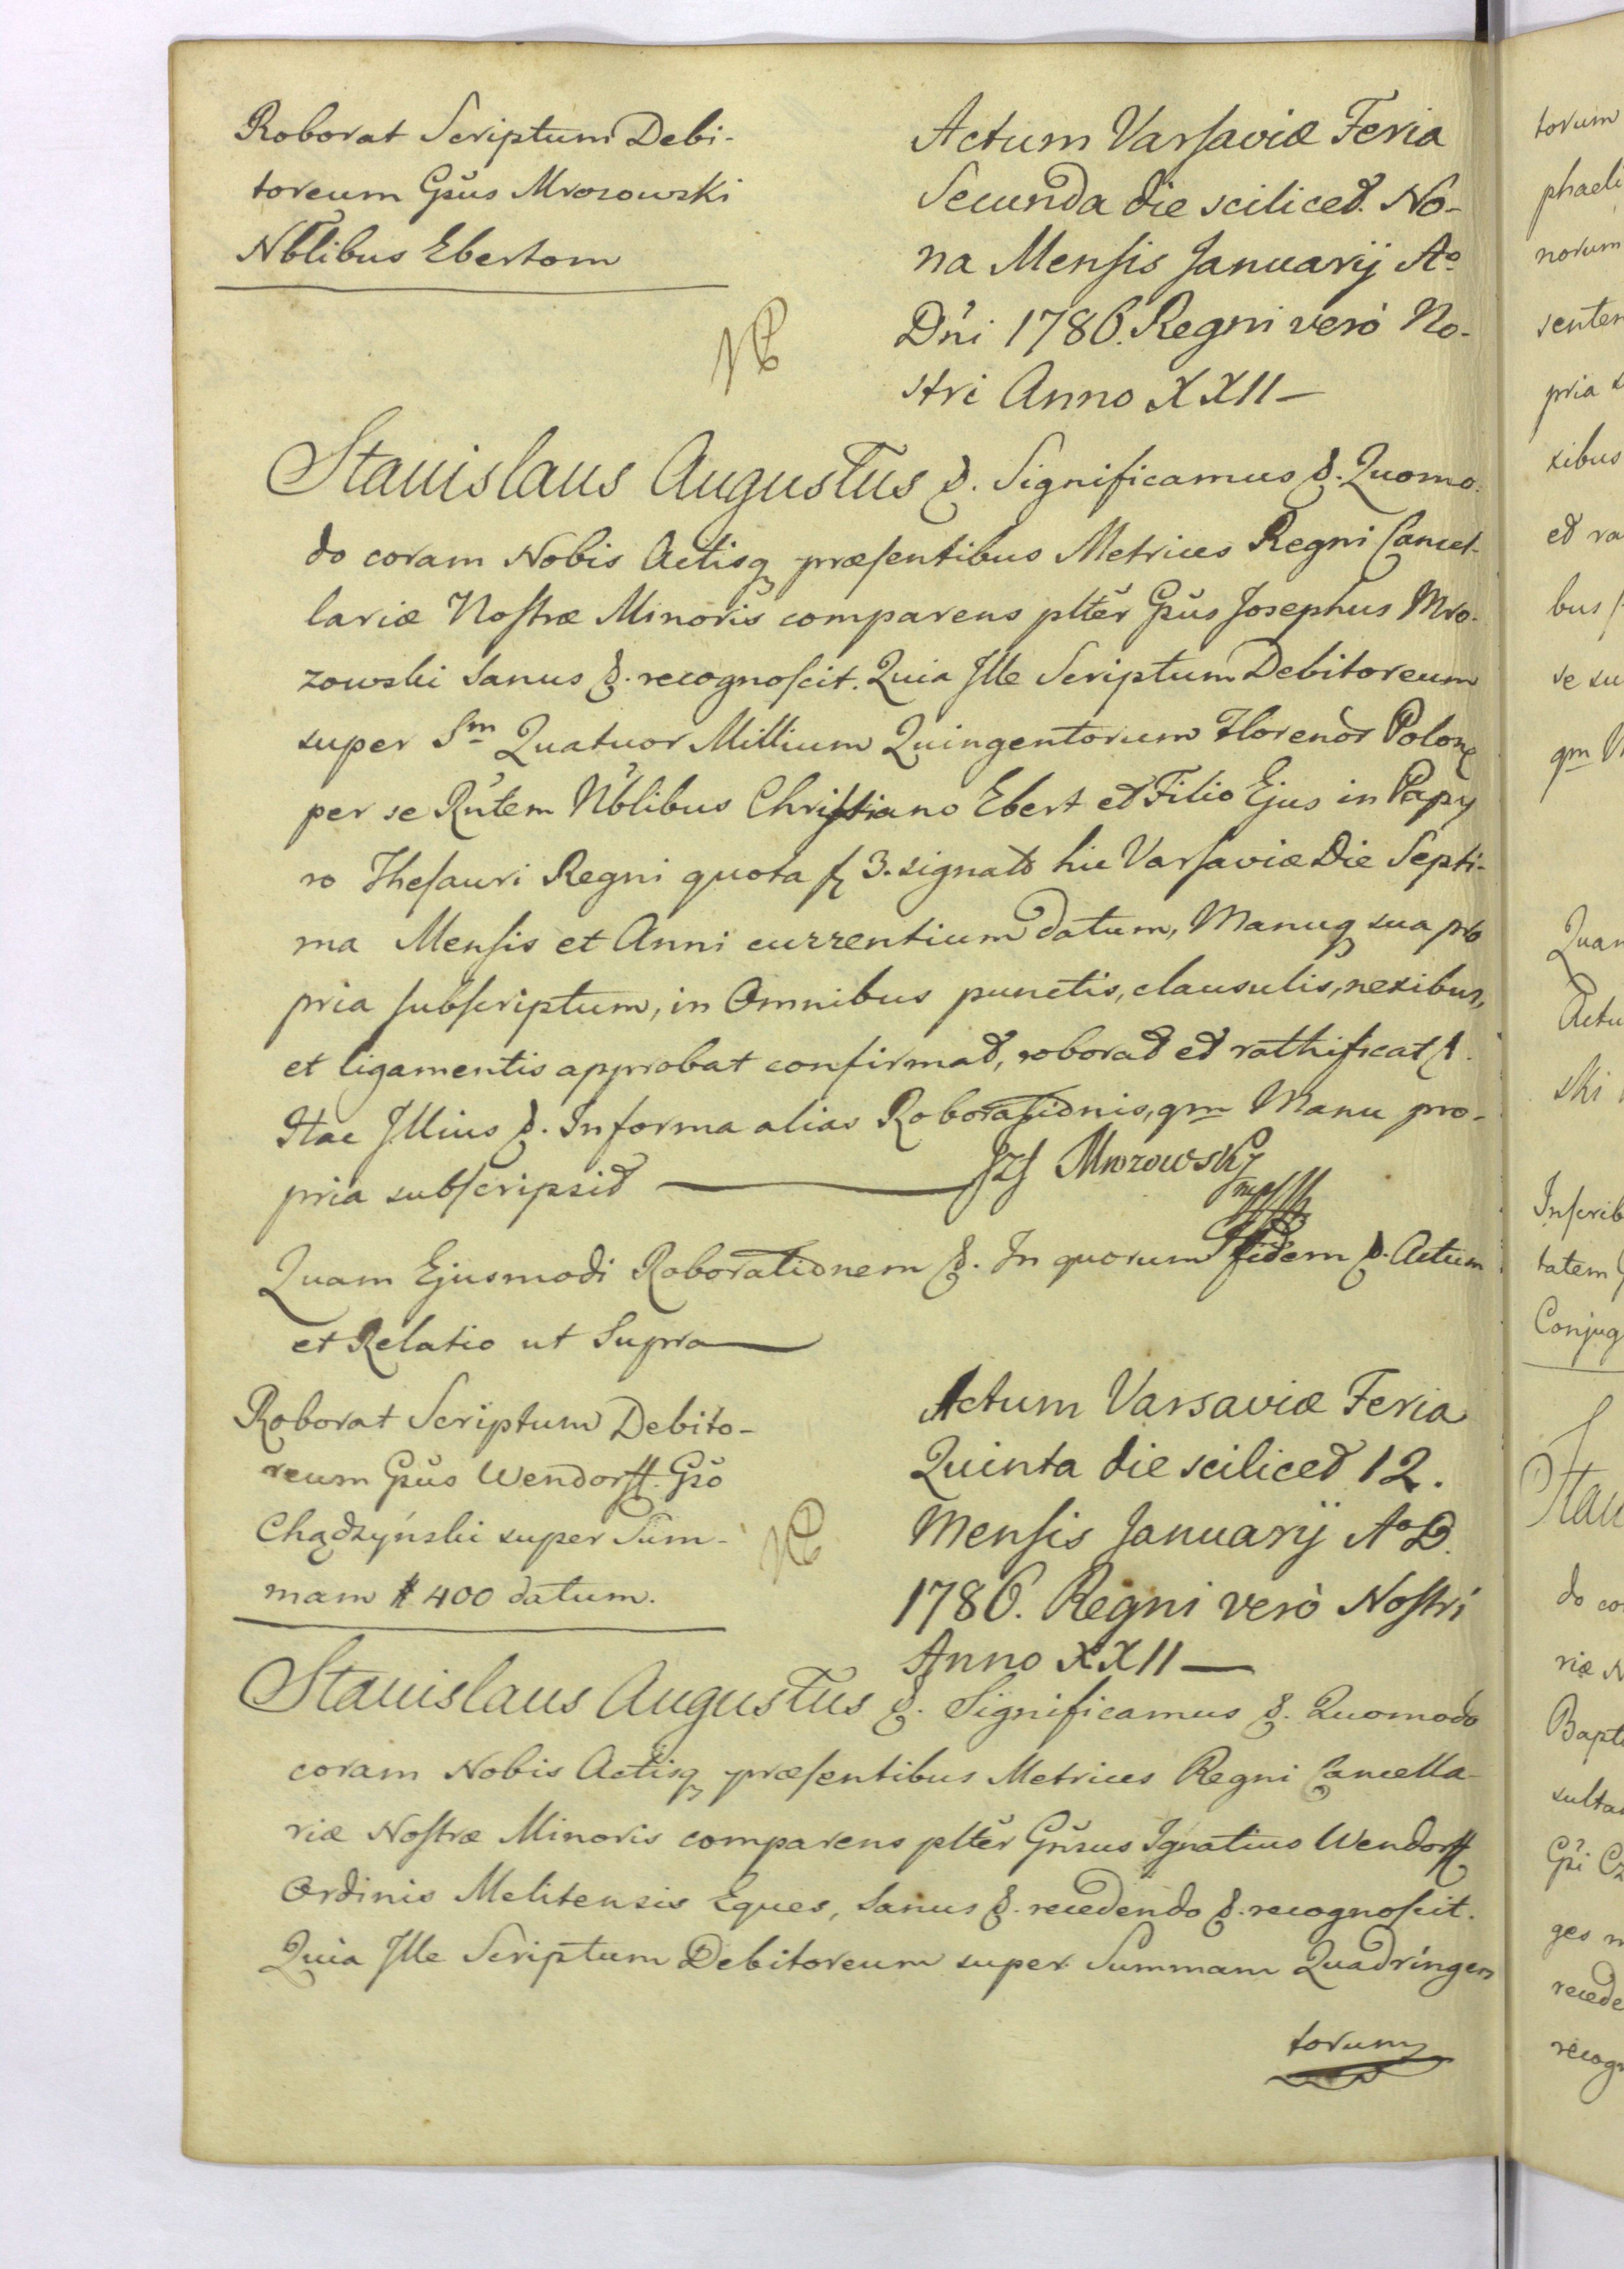 Roborat Scriptum Debi-
toreum Gsus Mrozowski
Nblibus Ebertom
Actum Varsaviæ Feria
Secunda die scilicet No-
na Mensis Januarij Ao
Dni 1786. Regni verò No-
stri Anno XXII
Stanislaus Augustus &. Significamus &. Quomo-
do coram Nobis Actisq præsentibus Metrices Regni Cancel-
lariæ Nostræ Minoris comparens plter Gsus Josephus Mro-
zowski sanus &. recognoscit. Quia Ille Scriptum Debitoreum
super Sm Quatuor Millium Quingentorum Florenor Polon
per se Rntem Nblibus Christiano Ebert et Filio Ejus in Papy
ro Thesauri Regni quota f 3. signato hic Varsaviæ Die Septi-
ma Mensis et Anni currentium datum, Manuq sua pro
pria subscriptum, in Omnibus punctis, clausulis, nexibus,
et ligamentis approbat confirmat, roborat et rathificat
Itae Illius &. In forma alias Roborationis, qm Manu pro-
pria subscripsit
Mrozowski mp
Quam Ejusmodi Roborationem &. In quorum fidem &. Actum
et Relatio ut Supra
Roborat Scriptum Debito-
reum Gsus Wendorff Gso
Chądzyński super Sum-
mam # 400 datum.
Actum Varsaviæ Feria
Quinta die scilicet 12.
Mensis Januarij Ao D.
1786. Regni verò Nostri
Anno XXII
Stanislaus Augustus &. Significamus &. Quomodo
coram Nobis Actisq præsentibus Metrices Regni Cancella-
riæ Nostræ Minoris comparens plter Gnsus Ignatius Wendorff
Ordinis Melitensis Eques, sanus &. recedendo &. recognoscit.
Quia Ille Scriptum Debitoreum super Summam Quadringen
torum
torum
phaeli
norum
senten
pria
xibus
et ra
bus
se su
qm
Quam
Actu
ski
Inscrib
tatem
Conjug
Stau
do co
riæ N
Bapt
sulta
Gsi Cz
ges
recede
recog